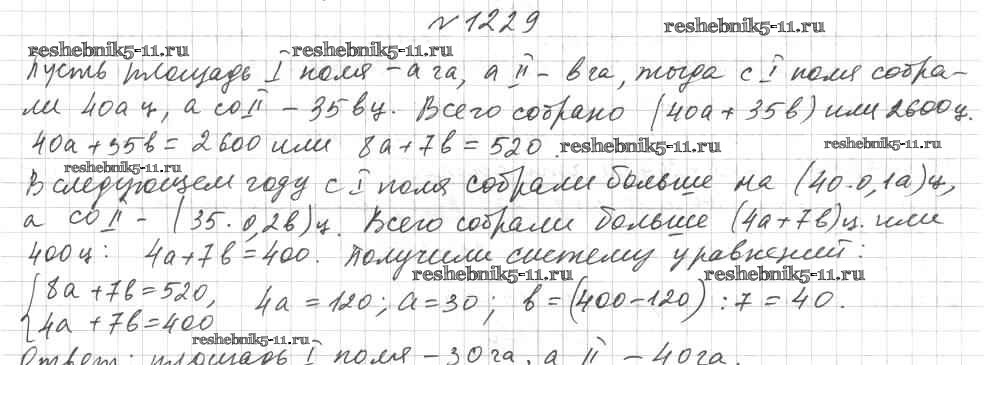 №1229
reshebnik5-11.ru
reshebnik5-11.ru reshebnik5-11.ru
Пусть площадь I поля – а га, а II – в га, тогда с I поля собра-
ли 40а ц, а со II – 35в ц. Всего собрано (40а + 35в) или 2600 ц.
40а + 35в = 2600 или 8а + 7в = 520. reshebnik5-11.ru reshebnik5-11.ru
reshebnik5-11.ru
В следующем году с I поля собрали больше на (40·0,1а) ц,
а со II – (35·0,2в) ц. Всего собрали больше (4а + 7в) ц. или
400 ц: 4а + 7в = 400. Получили систему уравнений:
reshebnik5-11.ru reshebnik5-11.ru
{ 8а + 7в = 520, 4а = 120; а = 30; в = (400 – 120) : 7 = 40.
4а + 7в = 400
reshebnik5-11.ru
Ответ: площадь I поля – 30 га, а II – 40 га.